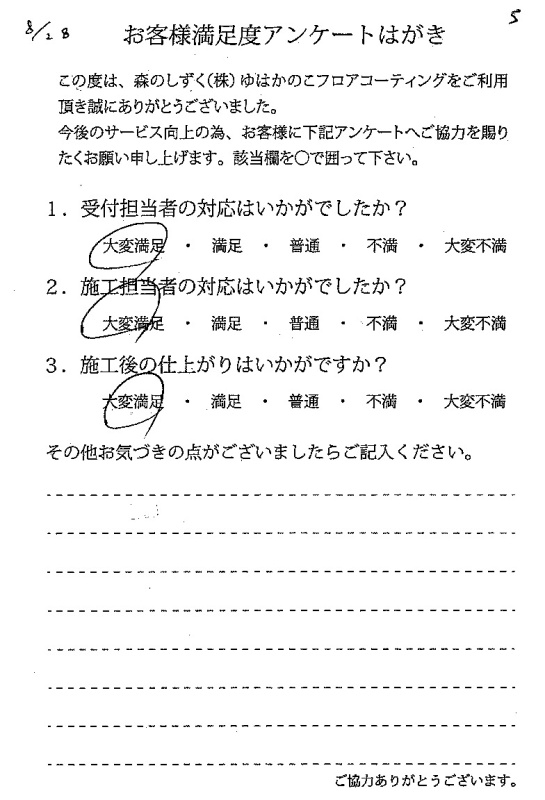 8/28
5
お客様満足度アンケートはがき
この度は、森のしずく(株)ゆはかのこフロアコーティングをご利用
頂き誠にありがとうございました。
今後のサービス向上の為、お客様に下記アンケートへご協力を賜り
たくお願い申し上げます。該当欄を〇で囲って下さい。
1．受付担当者の対応はいかがでしたか？
大変満足 ・ 満足 ・ 普通 ・ 不満 ・ 大変不満
2．施工担当者の対応はいかがでしたか？
大変満足 ・ 満足 ・ 普通 ・ 不満 ・ 大変不満
3．施工後の仕上がりはいかがですか？
大変満足 ・ 満足 ・ 普通 ・ 不満 ・ 大変不満
その他お気づきの点がございましたらご記入ください。
ご協力ありがとうございます。